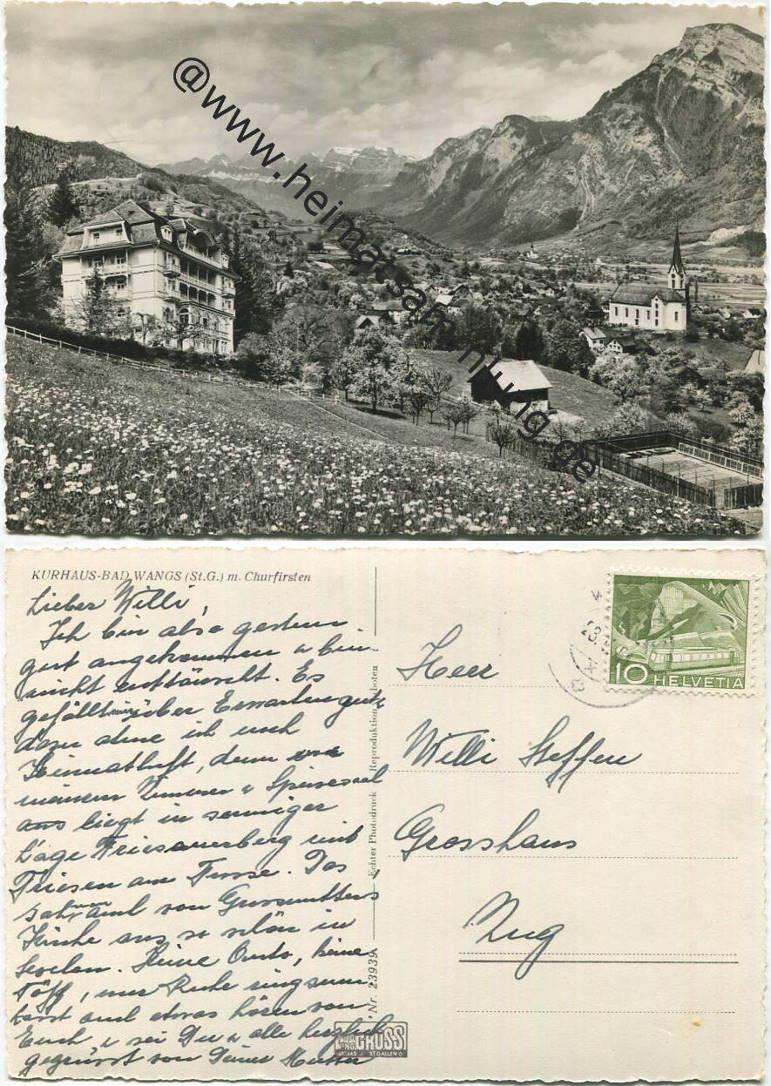 @www.heimatsammlung.de
KURHAUS-BAD WANGS (St.G.) m. Churfirsten
Lieber Willi,
Ich bin also gestern
gut angekommen u bin
nicht enttäuscht. Es
gefällt mir über Erwarten gut
dazu ohne ich noch
Heimatluft, denn von
meinem Zimmer u Speisesaal
aus liegt in sonniger
Lage Triesenerberg mit
Triesen am Fusse. Das
sah man von Grossmutters
Küche aus so schön in
Sevelen. Keine Auto, keine
Töff, nur Ruhe ringsum
Euch u sei Du u alle herzlich
gegrüsst von Deiner Mutter
Echter Photodruck Reproduktion verboten
Nr. 23939
GROSS
ST. GALLEN
10 HELVETIA
Herr
Willi Steffen
Grosshaus
Zug